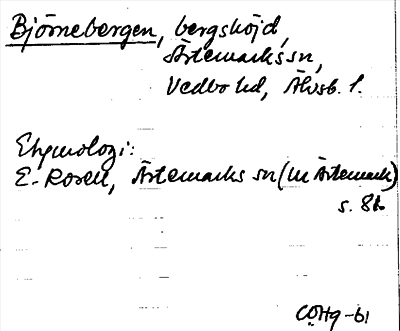 Björnebergen, bergshöjd,
Ärtemarks sn,
Vedbo hd, Älvsb. l.
Etymologi:
E. Rosell, Ärtemarks sn (in Ärtemark)
s. 82
COHg -61